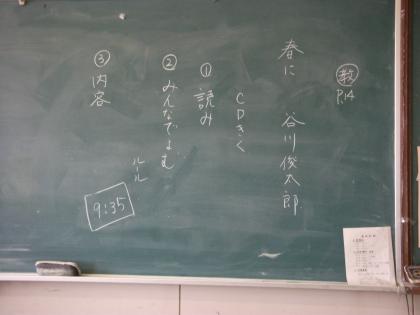 教
P.14
春に 谷川俊太郎
CDきく
① 読み
② みんなでよむ
ルール
③ 内容
9:35